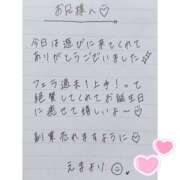 お兄様へ♡
今日は遊びに来てくれて
ありがとうございました
フェラ週末!上手!って
絶賛してくれてお誕生日
に癒せて嬉しいよ〜♡
副業売れますように♡
えまより